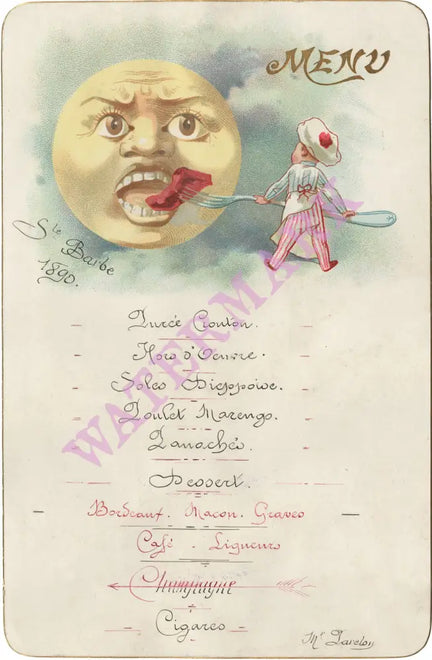 MENU
Ste Barbe
1890.
Purée Crouton.
Hors d'Oeuvre.
Soles Dieppoise.
Poulet Marengo.
Panachés.
Dessert.
Bordeaux. Macon. Graves
Café. Liqueurs
Champagne
Cigares
WATERMARK